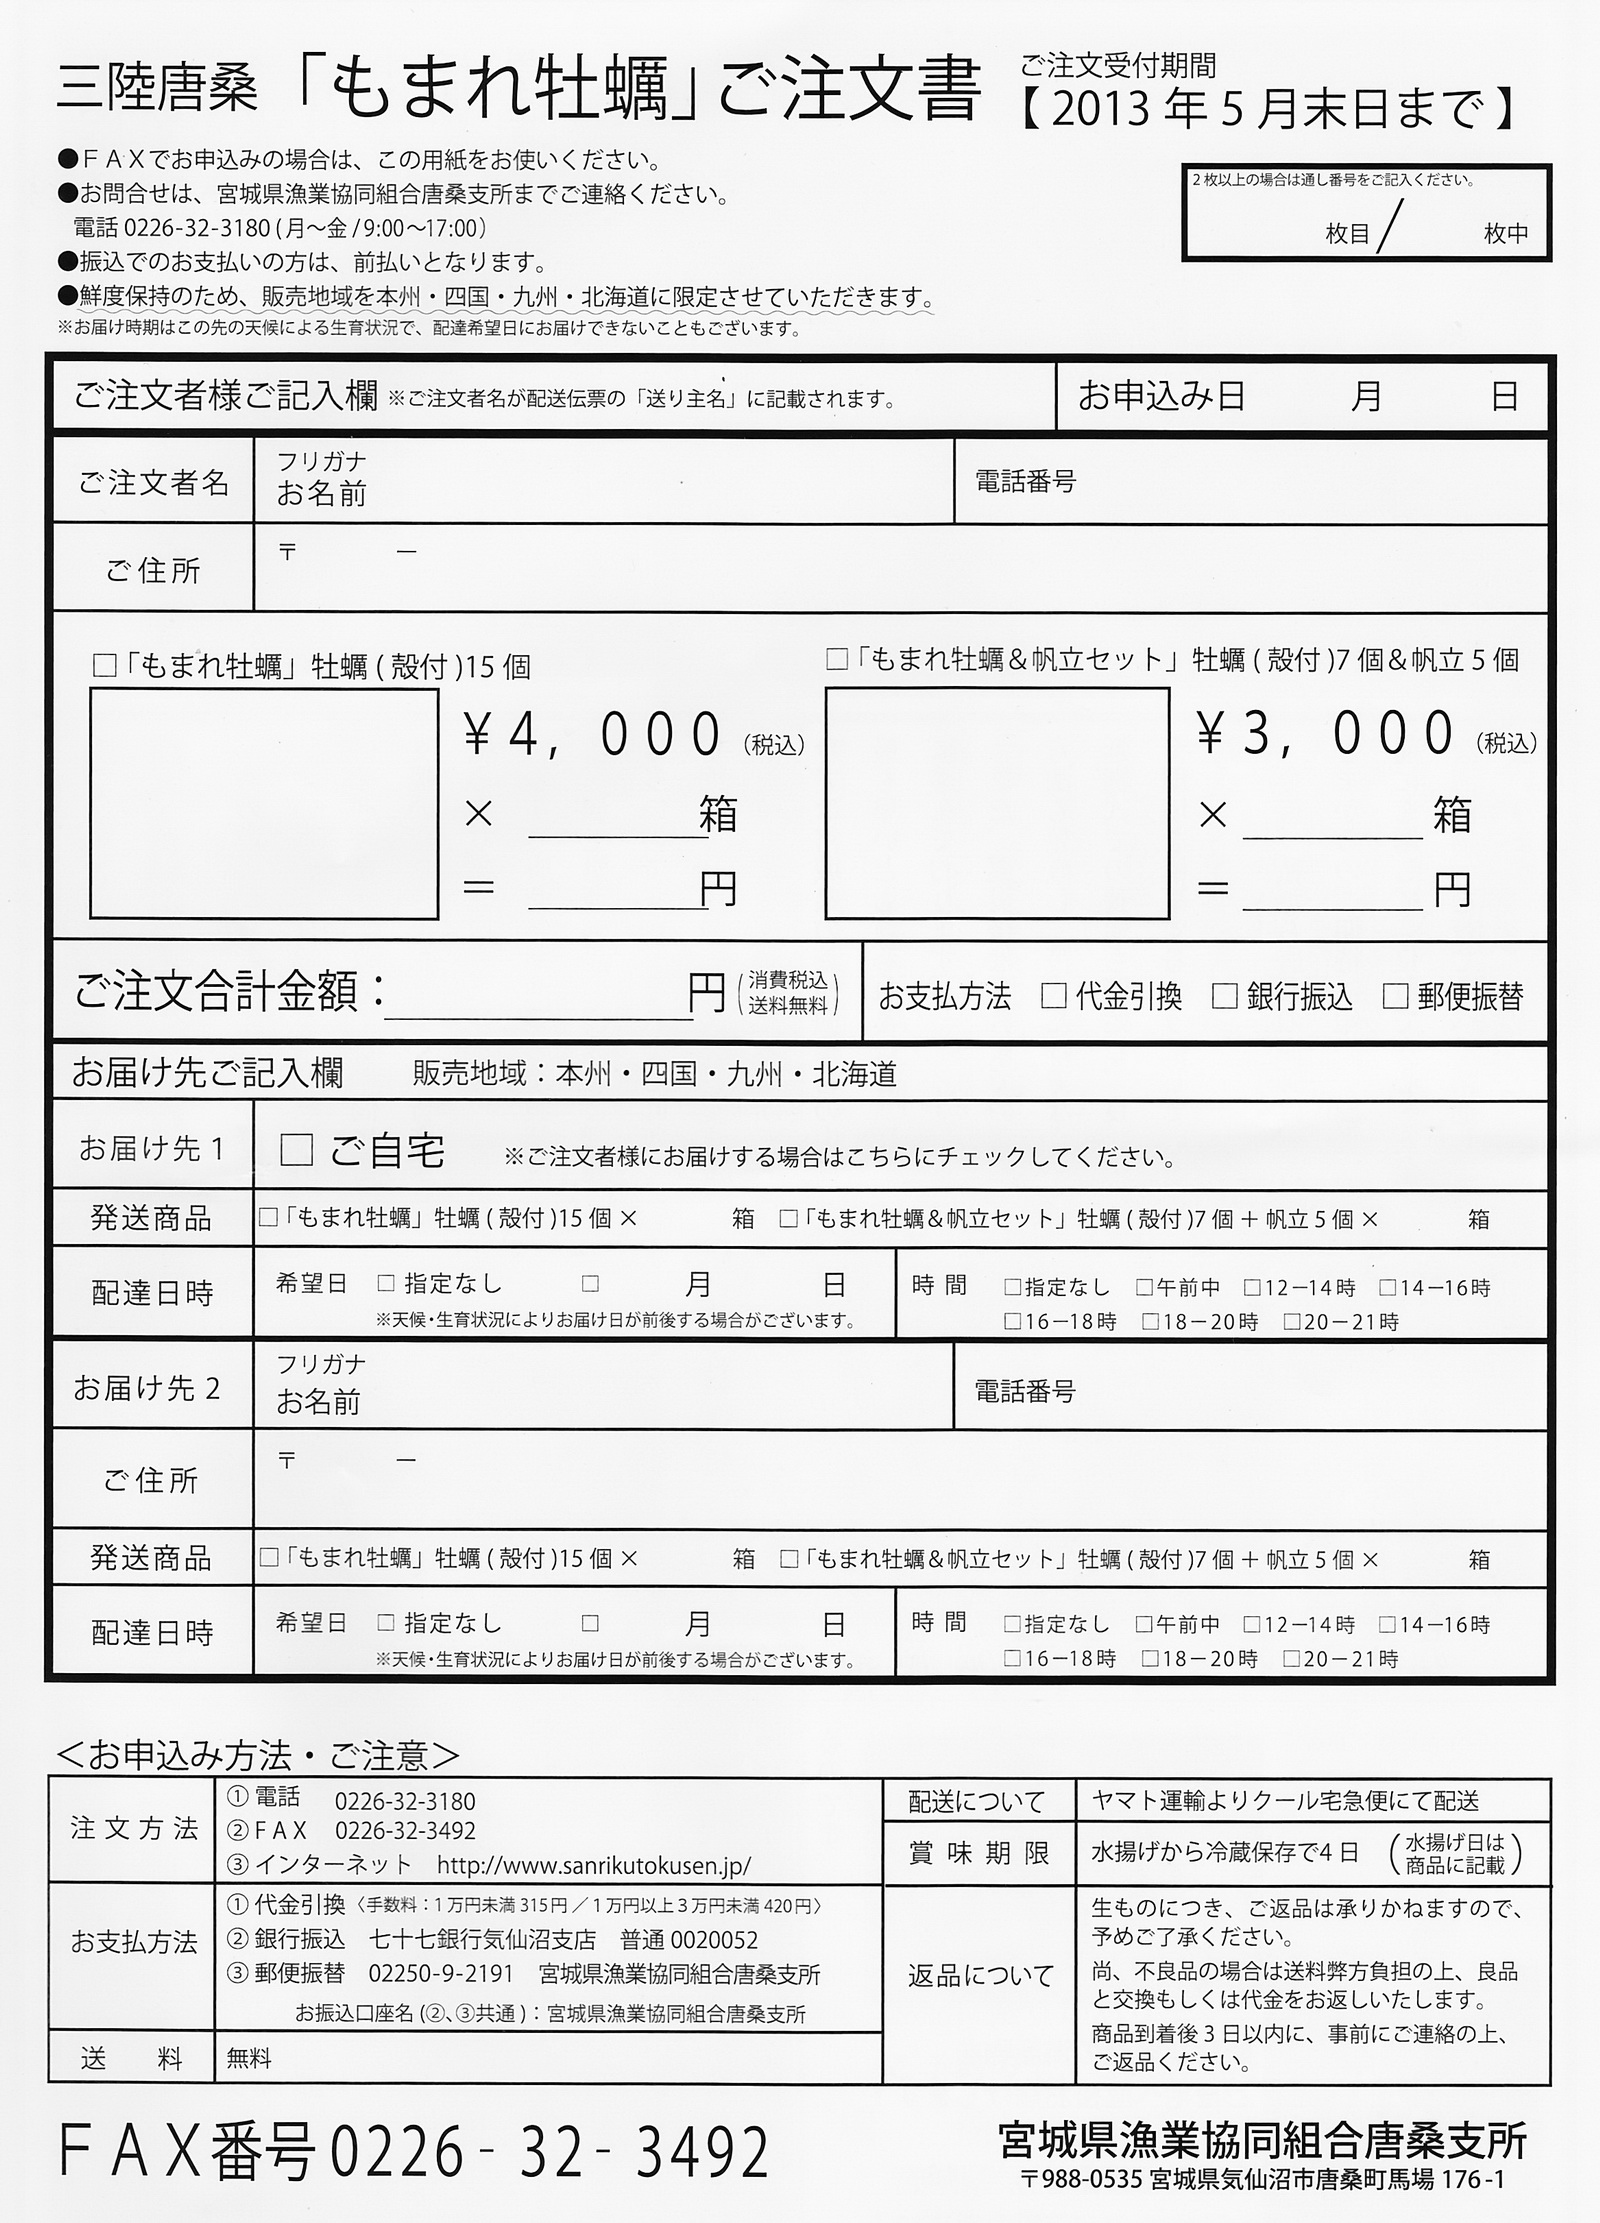 三陸唐桑「もまれ牡蠣」ご注文書
ご注文受付期間
【 2013 年 5 月末日まで 】
●ＦＡＸでお申込みの場合は、この用紙をお使いください。
●お問合せは、宮城県漁業協同組合唐桑支所までご連絡ください。
電話 0226-32-3180 ( 月～金 / 9:00～17:00）
●振込でのお支払いの方は、前払いとなります。
●鮮度保持のため、販売地域を本州・四国・九州・北海道に限定させていただきます。
※お届け時期はこの先の天候による生育状況で、配達希望日にお届けできないこともございます。
2 枚以上の場合は通し番号をご記入ください。
枚目 / 枚中
ご注文者様ご記入欄 ※ご注文者名が配送伝票の「送り主名」に記載されます。
お申込み日 月 日
ご注文者名
フリガナ
お名前
電話番号
ご住所
〒 －
□「もまれ牡蠣」牡蠣 ( 殻付 )15 個
¥4, 000（税込）
× 箱
＝ 円
□「もまれ牡蠣＆帆立セット」牡蠣 ( 殻付 )7 個＆帆立 5 個
¥3, 000（税込）
× 箱
＝ 円
ご注文合計金額： 円
（消費税込
送料無料）
お支払方法 □ 代金引換 □ 銀行振込 □ 郵便振替
お届け先ご記入欄 販売地域：本州・四国・九州・北海道
お届け先 1
□ ご自宅 ※ご注文者様にお届けする場合はこちらにチェックしてください。
発送商品
□「もまれ牡蠣」牡蠣 ( 殻付 )15 個 × 箱 □「もまれ牡蠣＆帆立セット」牡蠣 ( 殻付 )7 個 ＋ 帆立 5 個 × 箱
配達日時
希望日 □ 指定なし □ 月 日
※天候・生育状況によりお届け日が前後する場合がございます。
時 間 □指定なし □午前中 □12－14時 □14－16時
□16－18時 □18－20時 □20－21時
お届け先 2
フリガナ
お名前
電話番号
ご住所
〒 －
発送商品
□「もまれ牡蠣」牡蠣 ( 殻付 )15 個 × 箱 □「もまれ牡蠣＆帆立セット」牡蠣 ( 殻付 )7 個 ＋ 帆立 5 個 × 箱
配達日時
希望日 □ 指定なし □ 月 日
※天候・生育状況によりお届け日が前後する場合がございます。
時 間 □指定なし □午前中 □12－14時 □14－16時
□16－18時 □18－20時 □20－21時
＜お申込み方法・ご注意＞
注 文 方 法
① 電話 0226-32-3180
② F A X 0226-32-3492
③ インターネット http://www.sanrikutokusen.jp/
お支払方法
① 代金引換〈手数料：1 万円未満 315 円 ／ 1 万円以上 3 万円未満 420 円〉
② 銀行振込 七十七銀行気仙沼支店 普通 0020052
③ 郵便振替 02250-9-2191 宮城県漁業協同組合唐桑支所
お振込口座名 (②、③共通 )：宮城県漁業協同組合唐桑支所
送 料
無料
配送について
ヤマト運輸よりクール宅急便にて配送
賞 味 期 限
水揚げから冷蔵保存で4 日
（水揚げ日は
商品に記載）
返品について
生ものにつき、ご返品は承りかねますので、
予めご了承ください。
尚、不良品の場合は送料弊方負担の上、良品
と交換もしくは代金をお返しいたします。
商品到着後 3 日以内に、事前にご連絡の上、
ご返品ください。
ＦＡＸ番号 0226 - 32 - 3492
宮城県漁業協同組合唐桑支所
〒988-0535 宮城県気仙沼市唐桑町馬場 176 -1